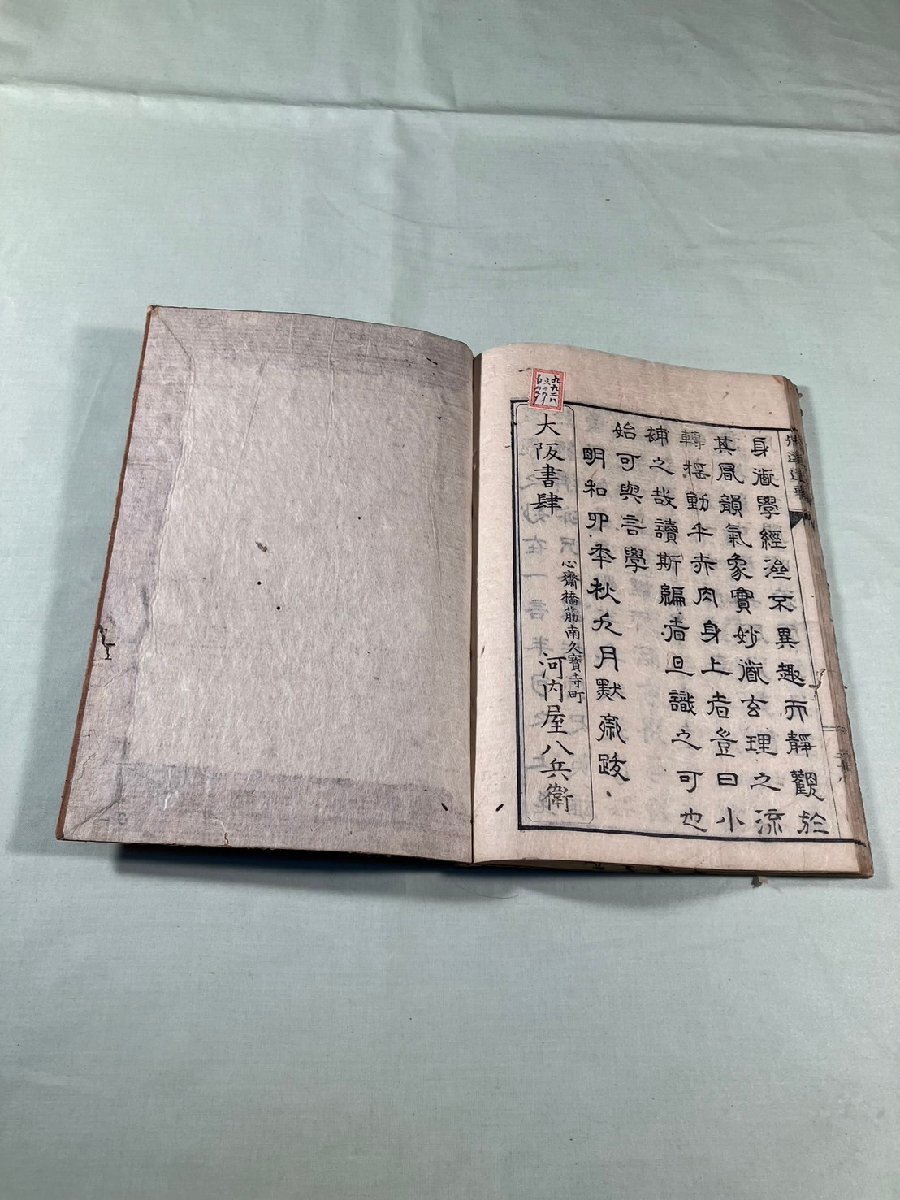 身嶶學經滋不異趣而靜觀於
其風韻氣象實妙嶶玄理之流
轉搖動乎赤肉身上者豈曰小
補之哉讀斯編者且識之可也
始可與言學
明和卯年秋九月默齋跋
大阪書肆 心齋橋筋南久寶寺町 河内屋八兵衛